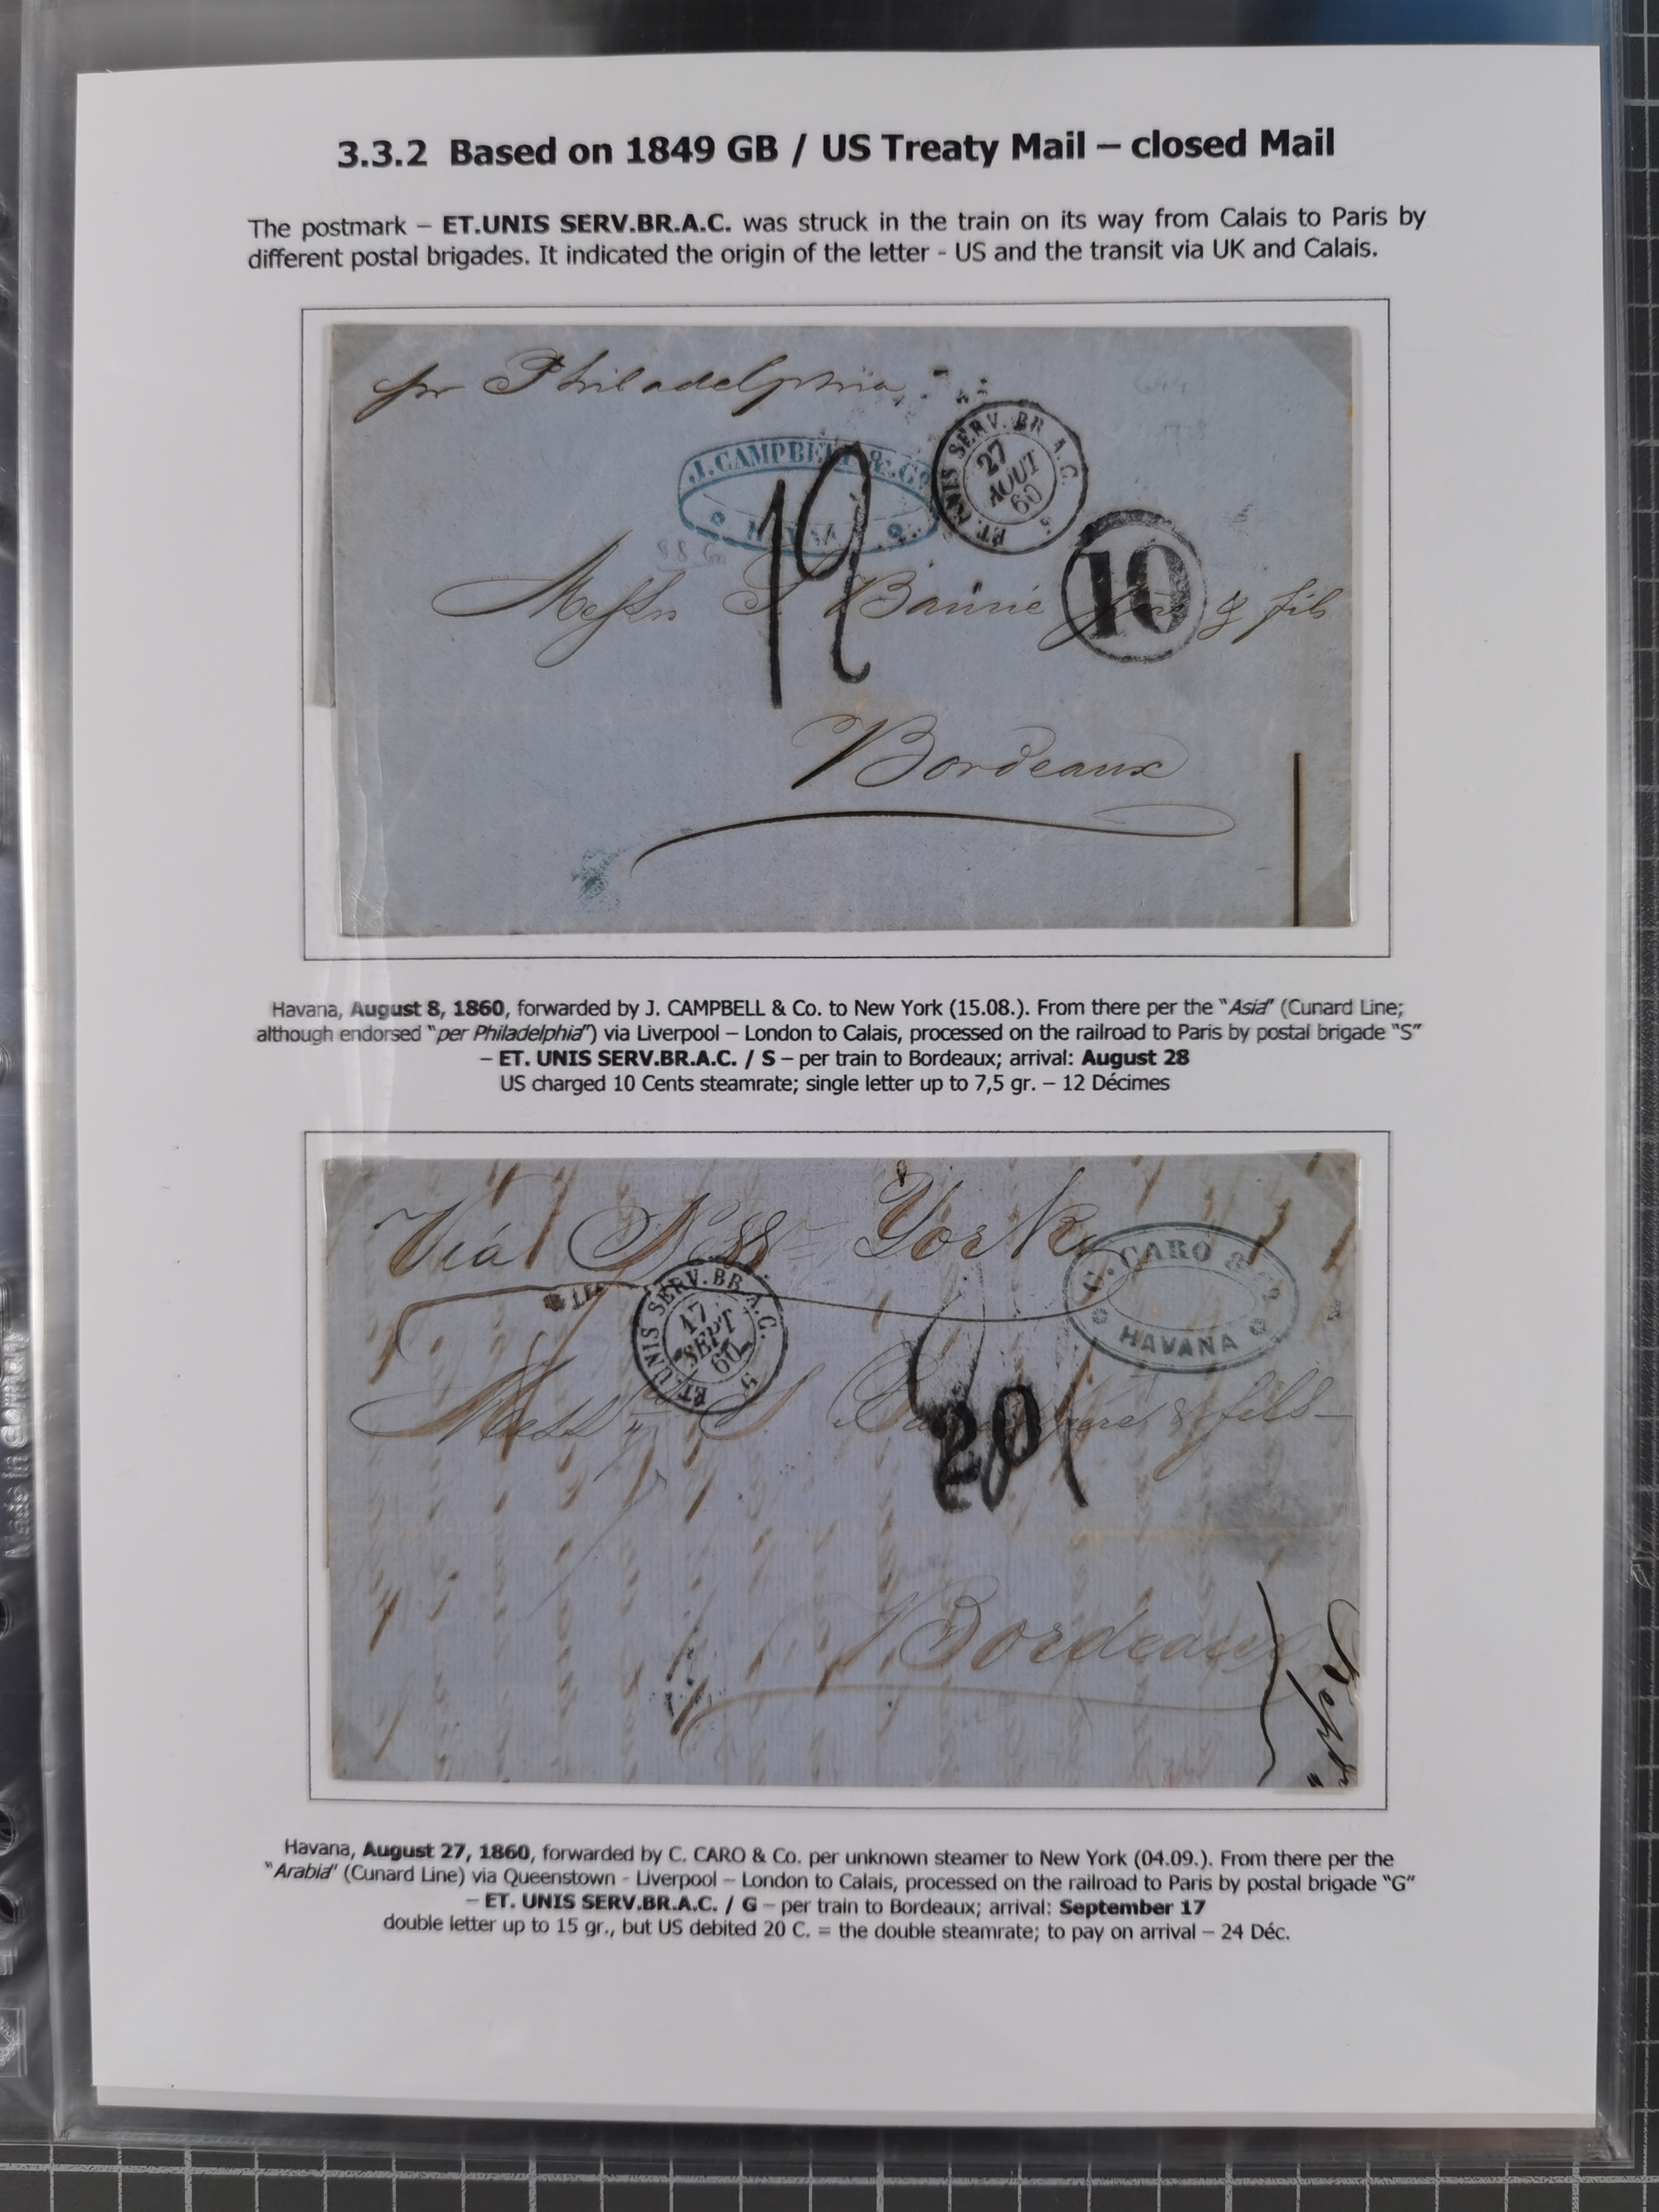 3.3.2 Based on 1849 GB / US Treaty Mail – closed Mail
The postmark – ET.UNIS SERV.BR.A.C. was struck in the train on its way from Calais to Paris by
different postal brigades. It indicated the origin of the letter - US and the transit via UK and Calais.
pr Philadelphia
J. CAMPBELL & Co
ET. UNIS SERV. BR A.C.
27
AOUT
60
12
10
Messrs & fils
Bordeaux
Havana, August 8, 1860, forwarded by J. CAMPBELL & Co. to New York (15.08.). From there per the "Asia" (Cunard Line;
although endorsed "per Philadelphia") via Liverpool – London to Calais, processed on the railroad to Paris by postal brigade "S"
– ET. UNIS SERV.BR.A.C. / S – per train to Bordeaux; arrival: August 28
US charged 10 Cents steamrate; single letter up to 7,5 gr. – 12 Décimes
Viá New York
C. CARO & Co
HAVANA
ET. UNIS SERV. BR A.C.
17
SEPT
60
20
& fils
Bordeaux
Havana, August 27, 1860, forwarded by C. CARO & Co. per unknown steamer to New York (04.09.). From there per the
"Arabia" (Cunard Line) via Queenstown - Liverpool – London to Calais, processed on the railroad to Paris by postal brigade "G"
– ET. UNIS SERV.BR.A.C. / G – per train to Bordeaux; arrival: September 17
double letter up to 15 gr., but US debited 20 C. = the double steamrate; to pay on arrival – 24 Déc.
Made in Germany